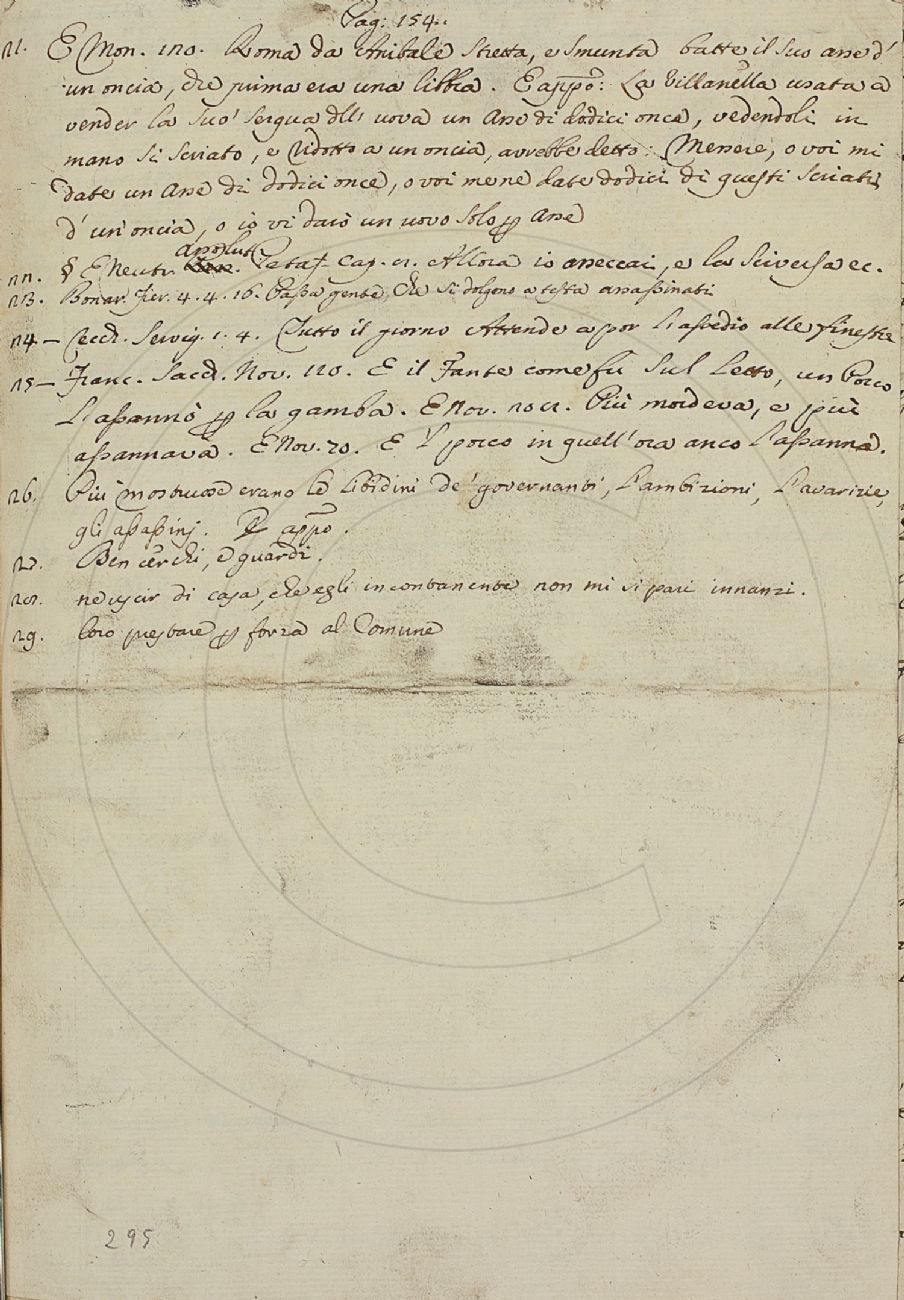 Pag: 154.
21. E Mon. 120. Roma da Anibale stretta, e smunta batte il suo asse d'
un oncia, che prima era una libbra. E appō: La Villanella usata a
vender la suo' serqua dll' uova un Asse di dodici once, vedendoli in
mano si sciato, e ridotto a un oncia, avrebbe detto: Messere, o voi mi
date un Asse di dodici once, o voi mene date dodici di questi sciati
d' un' oncia, o io vi darò un uovo solo ꝑ Asse
22. § E Neutr. assolut. Pataf. Cap. 2. Allora io asseccai, e la Sciversa ec.
23. Bonar. Fier. 4. 4. 16. Bassa gente, che si dolgono a testa assassinati
24 – Cecch. Servig. 1. 4. Tutto il giorno Attende a por l'assedio alle finestre
25 – Franc. Sacch. Nov. 110. E il Fante come fù sul Letto, un Porco
l'assannò ꝑ la gamba. E Nov. 208. Più mordeva, e più
assannava. E Nov. 70. E 'l porco in quell' ora anco l'assanna.
26. Più mostruose erano le libidini de' governanti, l'ambizioni, l'avarizie,
gli assassinj. E appō.
27. Ben cerchi, e guardi.
28. ne uscir di casa, che egli incontanente non mi si pari innanzi.
29. loro prestare ꝑ forza al Comune
295